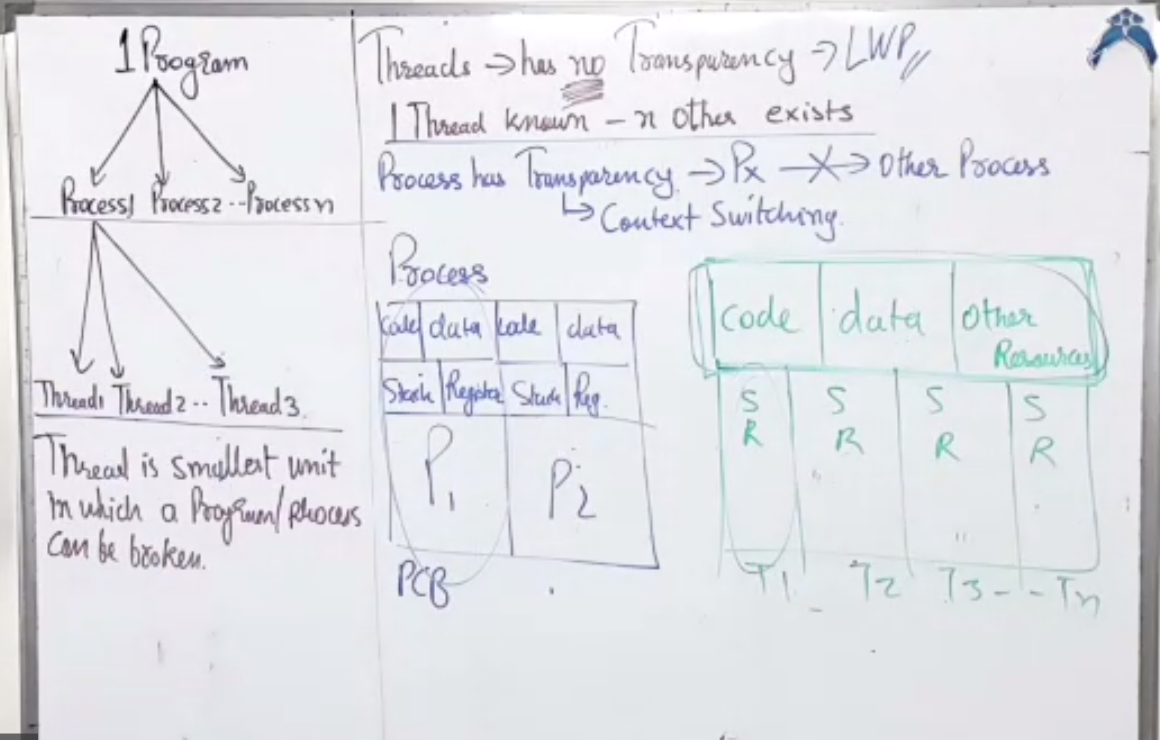 1 Program
Process1 Process2 -- Process n
Thread1 Thread2 -- Thread3.
Thread is smallest unit
in which a Program/process
can be broken.
Threads → has no Transparency → LWP
1 Thread known - n other exists
Process has Transparency → Px → Other Process
↳ Context Switching.
Process
Code data Code data
Stack Register Stack Reg.
P1 P2
PCB
code data Other
Resources
S S S S
R R R R
T1 T2 T3 - - Tn